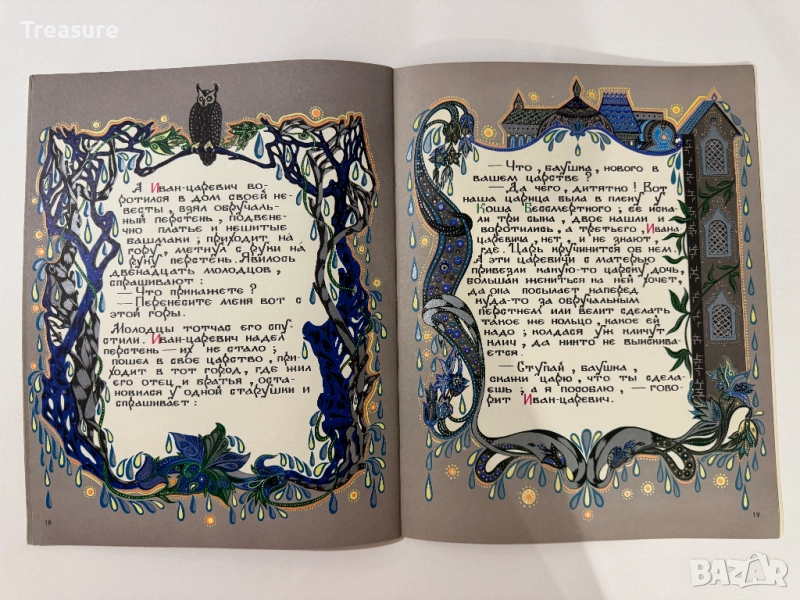 Treasure
А Иван-царевич во-
ротился в дом своей не-
весты, взял обручаль-
ный перстень, подвене-
чно платье и нешитые
башмаки; приходит на́
гору, метнул с руки на
руку перстень. Явилось
двенадцать молодцов,
спрашивают:
— Что прикажете?
— Перенесите меня вот с
этой горы.
Молодцы тотчас его спу-
стили. Иван-царевич надел
перстень — их не стало;
пошел в свое царство, при-
ходит в тот город, где жил
его отец и братья, оста-
новился у одной старушки и
спрашивает:
18
— Что, баушка, нового в
вашем царстве?
— Да чего, дитятко! Вот
наша царица была в плену у
Коша Бессмертного; ее иска-
ли три сына, двое нашли и
воротились, а третьего, Ивана-
царевича, нет, и не знают,
где. Царь кручинится об нем.
А эти царевичи с матерью
привезли какую-то царску дочь,
большак жениться на ней хочет,
да она посылает наперед
куда-то за обручальным
перстнем или велит сделать
такое же кольцо, какое ей
надо; колдася уж кличут
клич, да никто не выиски-
вается.
— Ступай, баушка,
скажи царю, что ты сдела-
ешь; а я пособлю, — гово-
рит Иван-царевич.
19
BAZAR